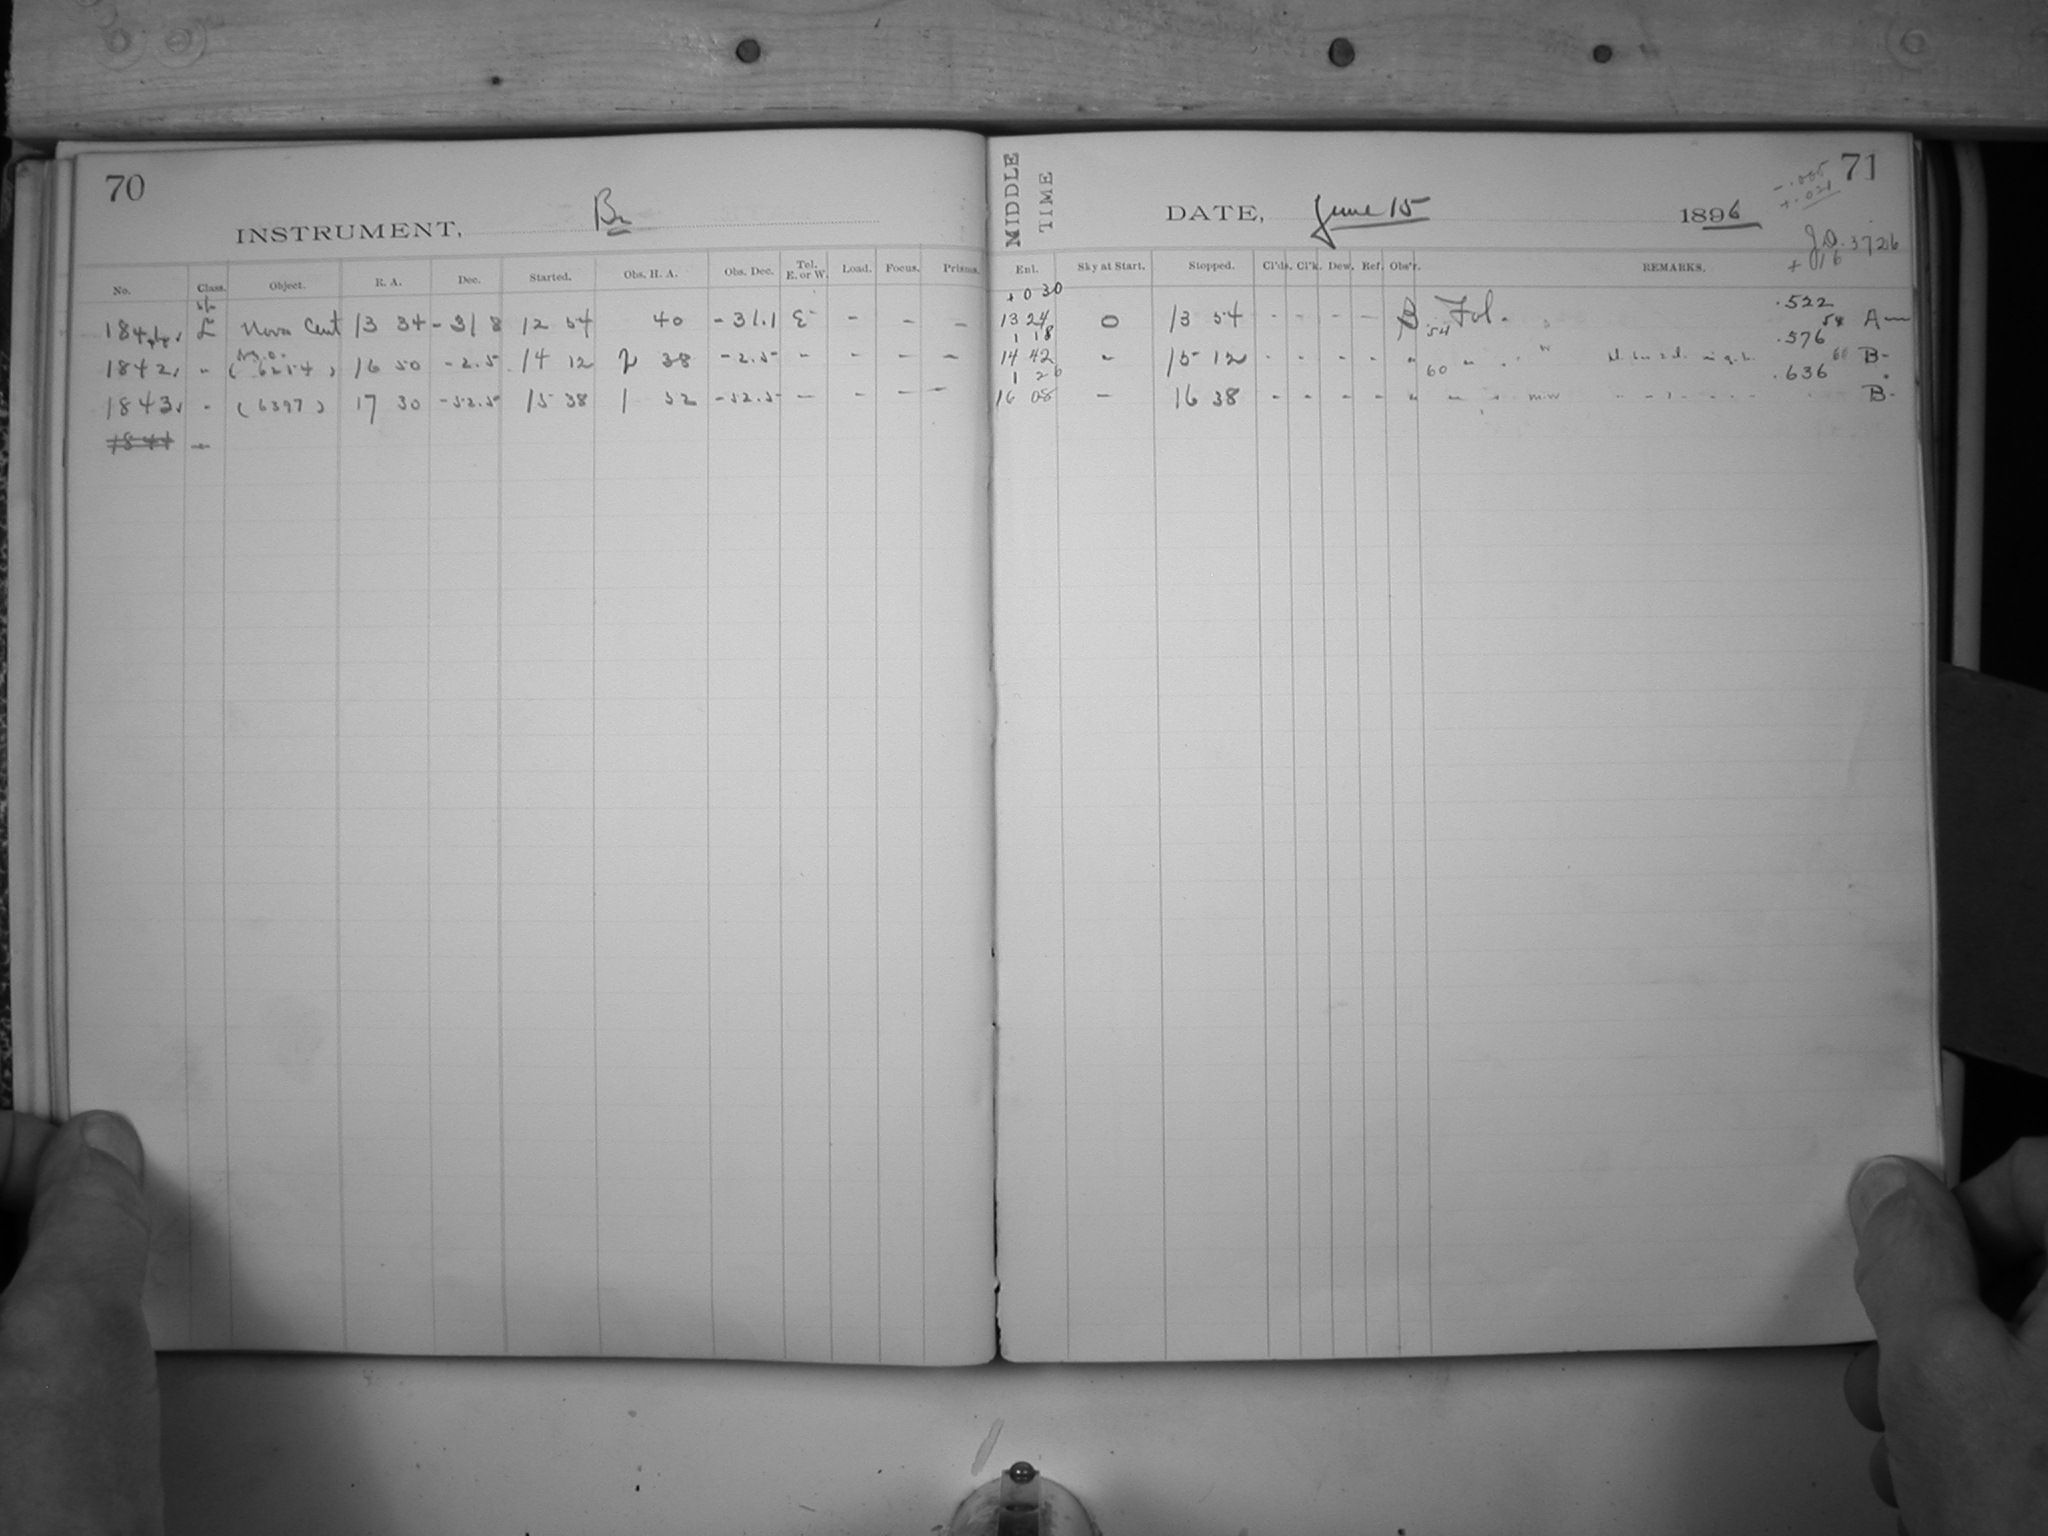 70
INSTRUMENT, Br
No. Class. Object. R. A. Dec. Started. Obs. H. A. Obs. Dec. Tel. E. or W. Load. Focus. Prisms.
L Nova Cent 13 34 - 31 8 12 54 40 - 31.1 E - - -
1842 " ( 6254 ) 16 50 - 2.5 14 12 2 38 - 2.5 - - - -
1843 " ( 6397 ) 17 30 - 52.5 15 38 1 52 - 52.5 - - - -
1844
MIDDLE TIME
DATE, June 15 1896
71
- .005
+ .021
J.D. 3726
+ 16
Enl. Sky at Start. Stopped. Cl'ds. Cl'k. Dew. Ref. Obs'r. REMARKS.
+ 0 30
13 24 0 13 54 - - - - B Fol. .522 A
1 18 54 .576 54
14 42 - 15 12 - - - - " B-
1 26 60 .636 60
16 08 - 16 38 - - - - " B-